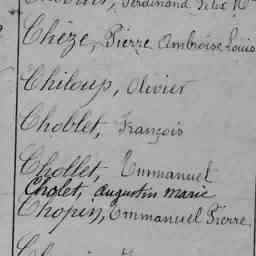 Ferdinand Felix
Chèze, Pierre Ambroise Louis
Chiloup, Olivier
Choblet, François
Chollet, Emmanuel
Cholet, Augustin Marie
Chopin, Emmanuel Pierre